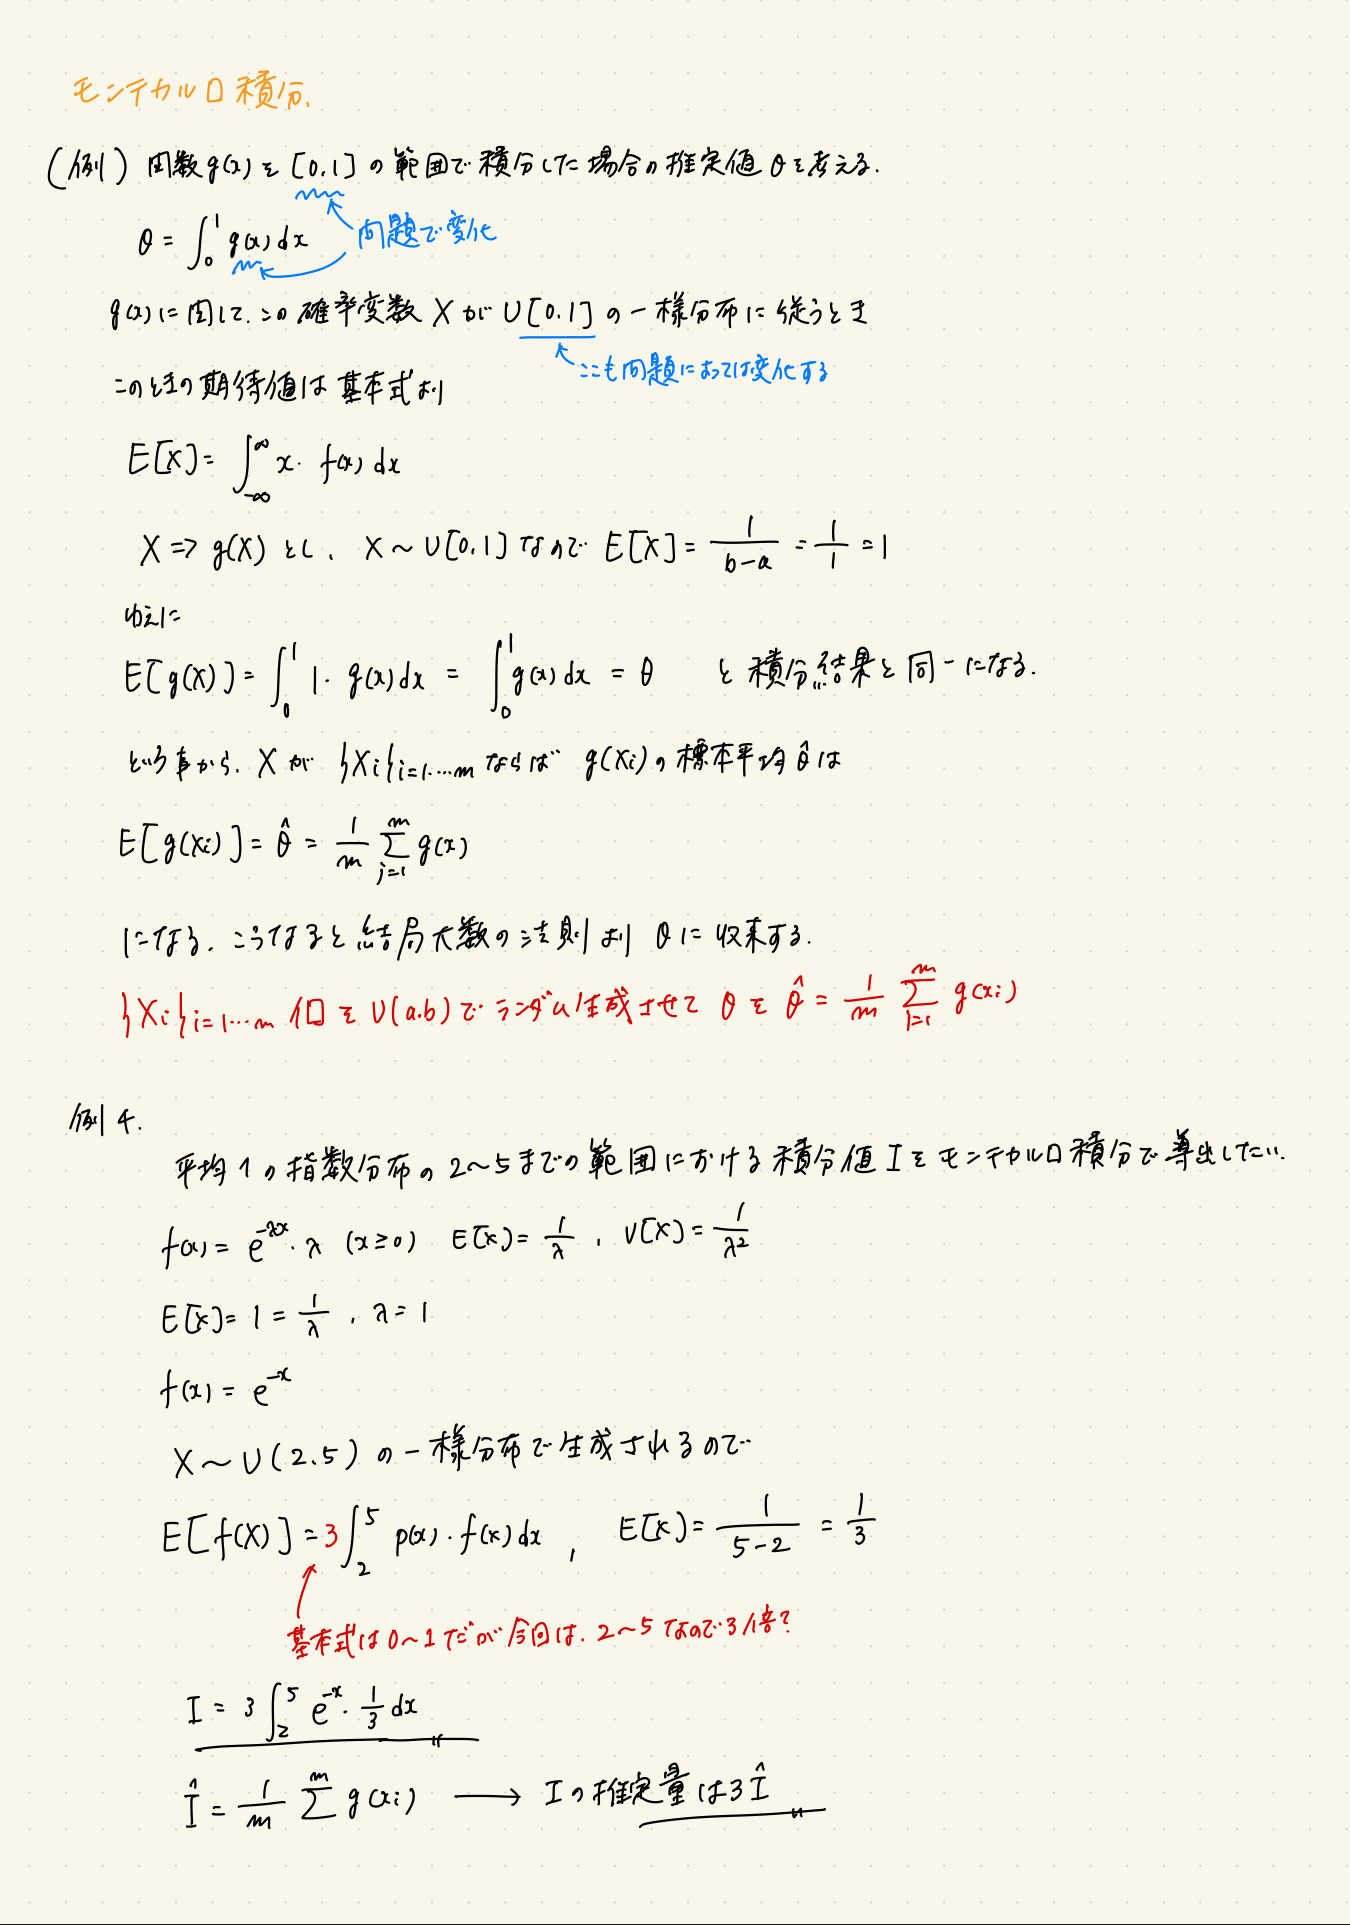 モンテカルロ積分.
(例) 関数g(x)を[0,1]の範囲で積分した場合の推定値θを考える.
θ = ∫₀¹ g(x) dx
問題で変化
g(x)に関して、この確率変数 X が U[0,1] の一様分布に従うとき
ここも問題によっては変化する
このときの期待値は基本式より
E[X] = ∫_{-∞}^{∞} x・f(x) dx
X ⇒ g(X) とし、 X ~ U[0,1] なので E[X] = 1/(b-a) = 1/1 = 1
ゆえに
E[g(X)] = ∫₀¹ 1・g(x) dx = ∫₀¹ g(x) dx = θ と積分結果と同一になる.
という事から、X が {Xi}i=1…m ならば g(Xi)の標本平均 θ̂ は
E[g(Xi)] = θ̂ = 1/m Σ_{j=1}^{m} g(x)
になる. こうなると結局大数の法則より θに収束する.
{Xi}i=1…m 個を U(a,b)でランダム生成させて θを θ̂ = 1/m Σ_{i=1}^{m} g(xi)
例4.
平均1の指数分布の2~5までの範囲における積分値Iをモンテカルロ積分で導出したい.
f(x) = e^{-λx}・λ (x≥0) E[X] = 1/λ , V[X] = 1/λ²
E[X] = 1 = 1/λ , λ = 1
f(x) = e^{-x}
X ~ U(2,5) の一様分布で生成されるので
E[f(X)] = 3∫₂⁵ p(x)・f(x) dx , E[X] = 1/(5-2) = 1/3
基本式は0~1だが今回は、2~5なので3倍?
I = 3∫₂⁵ e^{-x}・1/3 dx
Î = 1/m Σ^{m} g(xi) → Iの推定量は3Î